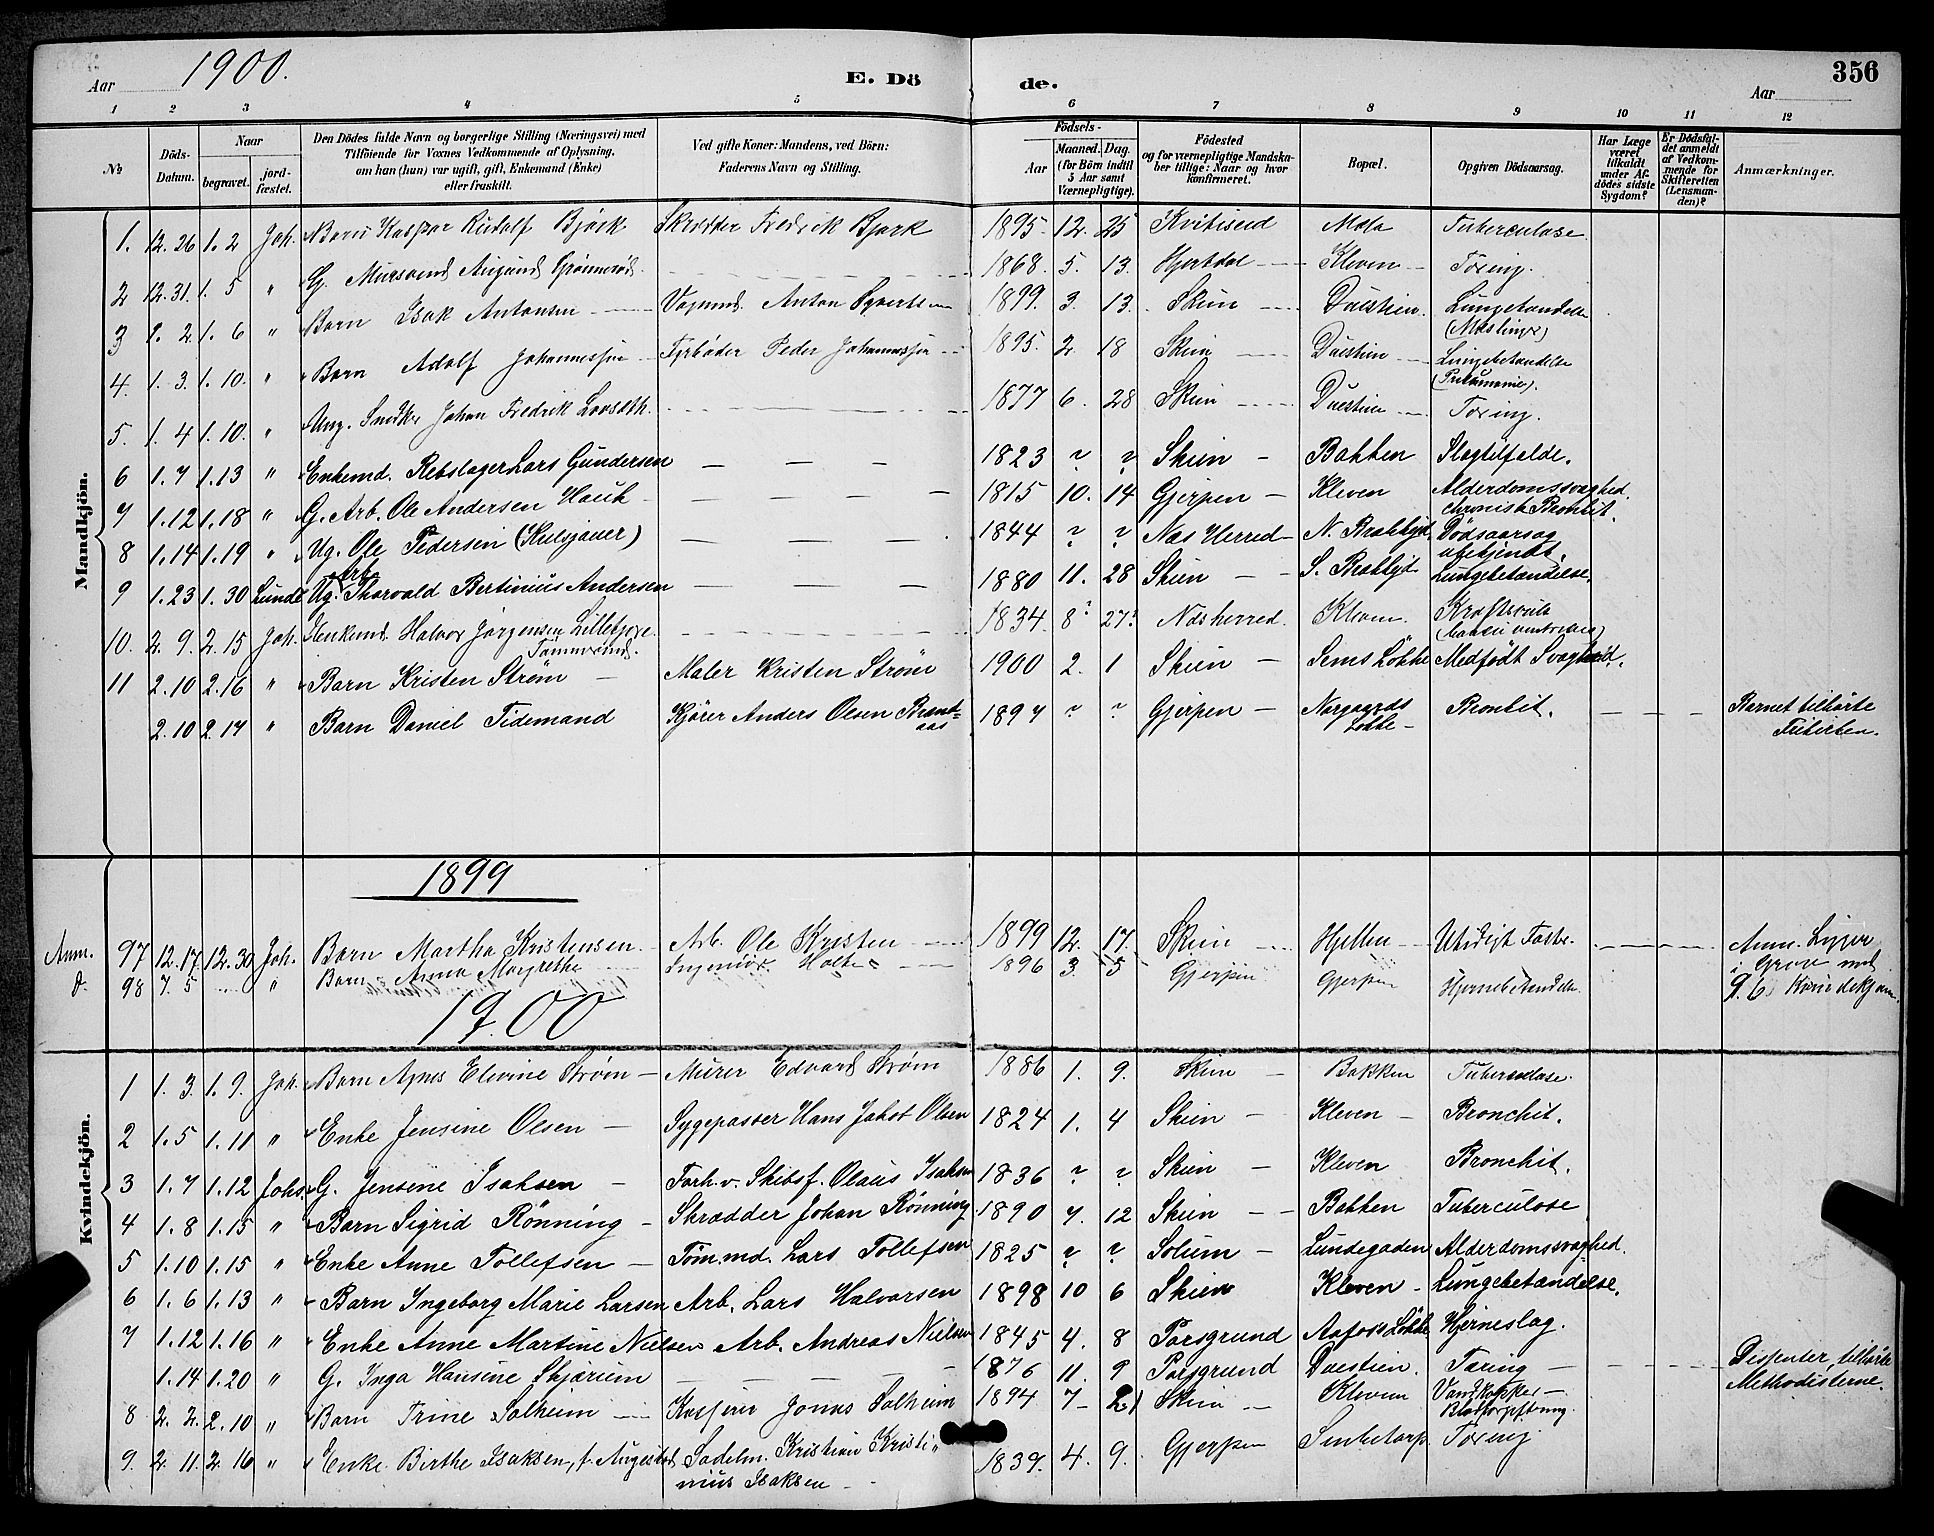 Aar 1900. E. Dö de. Aar 356
1 2 3 4 5 6 7 8 9 10 11 12
№ Döds-Datum. Naar begravet. jordfæstet. Den Dödes fulde Navn og borgerlige Stilling (Næringsvei) med Tilföiende for Voxnes Vedkommende af Oplysning, om han (hun) var ugift, gift, Enkemand (Enke) eller fraskilt. Ved gifte Koner: Mandens, ved Börn: Faderens Navn og Stilling. Födsels- Aar Maaned. Dag. (for Börn indtil 5 Aar samt Værnepligtige). Födested og for værnepligtige Mandskaber tillige: Naar og hvor konfirmeret. Bopæl. Opgiven Dödsaarsag. Har Læge været tilkaldt under Afdödes sidste Sygdom? Er Dödsfaldet anmeldt af Vedkommende for Skifteretten (Lensmanden)? Anmærkninger.
Mandkjön.
1. 12.26 1.2 Joh. Barn Kaspar Rudolf Bjørk Skrædder Fredrik Bjørk 1895 12. 25 Kvitiseid Mæla Tuberculose
2 12.31. 1.5 " G. Mursvend Augund Grønnerød 1868. 5. 13. Hjertdal Kleven Tæring.
3 1.2. 1.6 " Barn Isak Antonsen Vognmd. Anton Syvertsen 1899. 3. 13. Skien Duestien. Lungebetændelse (Mæslinger)
4. 1.3. 1.10. " Barn Adolf Johannessen Fyrbøder Peder Johannessen 1895. 2. 18 Skien Duestien Lungebetændelse (Pneumonie).
5. 1.4 1.10. " Ung. Snedker Johan Fredrik 1877 6. 28 Skien Duestien Tæring.
6 1.7 1.13 " Enkemd. Rebslager Lars Gundersen 1823 ? ? Skien Bakken Slagtilfælde.
7 1.12 1.18 " G. Arb. Ole Andersen Hauk 1815 10. 14 Gjerpen Kleven Alderdomssvaghed. chronisk Bronkit.
8 1.14 1.19 " Ug. Ole Pedersen (Kulsjauer) 1844 ? ? Næs Herred N. Brækkjd. Dødsaarsag ubekjendt.
9 1.23 1.30 Lunde Ug. Arb. Thorvald Bertinius Andersen 1880 11. 28 Skien S. Brækkjd. Lungebetændelse.
10. 2.9. 2.15 Joh. Enkemd. Halvor Jørgensen Lillekjær Tømmermd. 1834. 8? 27? Næsherred Kleven Kræftsvulst
11 2.10 2.16 " Barn Kristen Strøm Maler Kristen Strøm 1900 2. 1 Skien Sems Løkke Medfødt Svaghed.
2.10 2.17 " Barn Daniel Tidemand Kjører Anders Olsen Brændaas 1897 ? ? Gjerpen Norgaards Løkke Bronkit. Barnet tilhørte Frikirken.
1899
Anm. 97 12.17. 12.30 Joh. Barn Martha Kristensen Arb. Ole Kristen 1899 12. 17. Skien Hjellen Utidigt Foster Anm. Ligger i Grav med
D. 98 7.5 " Barn Anna Margrethe Ingeniør Holte 1896 3. 5 Gjerpen Gjerpen Hjernebetændelse
1900
Kvindekjön.
1 1.3. 1.9. Joh. Barn Agnes Elevine Strøm Murer Edvard Strøm 1886 1. 9. Skien Bakken Tuberculose.
2 1.5 1.11 " Enke Jensine Olsen Sygepasser Hans Jakob Olsen 1824 1. 4 Skien Kleven Bronchit.
3 1.7 1.12 Johs. G. Jensine Isaksen Forh.v. Skibsf. Olaus Isaksen 1836 ? ? Skien Kleven Bronchit.
4 1.8 1.15 " Barn Sigrid Rønning Skrædder Johan Rønning 1890 7. 12 Skien Bakken Tuberculose
5 1.10 1.15 " Enke Anne Tollefsen Tøm.md. Lars Tollefsen 1825 ? ? Solum Lundegaden Alderdomssvaghed.
6 1.6 1.13 " Barn Ingeborg Marie Larsen Arb. Lars Halvorsen 1898 10 6 Skien Kleven Lungebetændelse.
7 1.12 1.16 " Enke Anne Martine Nielsen Arb. Andreas Nielsen 1845 4. 8 Porsgrund Aafoss Løkke Hjerneslag.
1.14 1.20 " G. Inga Hansine Skjærum 1876 11. 9 Porsgrund Duestien. Tæring Dissenter, tilhørte Methodisterne.
8 2.2. 2.10 " Barn Trine Solheim Kasserer Jonas Solheim 1894 7 2 Skien Kleven Vandkopper Blodforgiftning.
9. 2.11. 2.16 " Enke Birthe Isaksen, f. Augestad Sadelm. Kristian Kristinius Isaksen 1839. 4. 9. Gjerpen Snibetorp Tæring